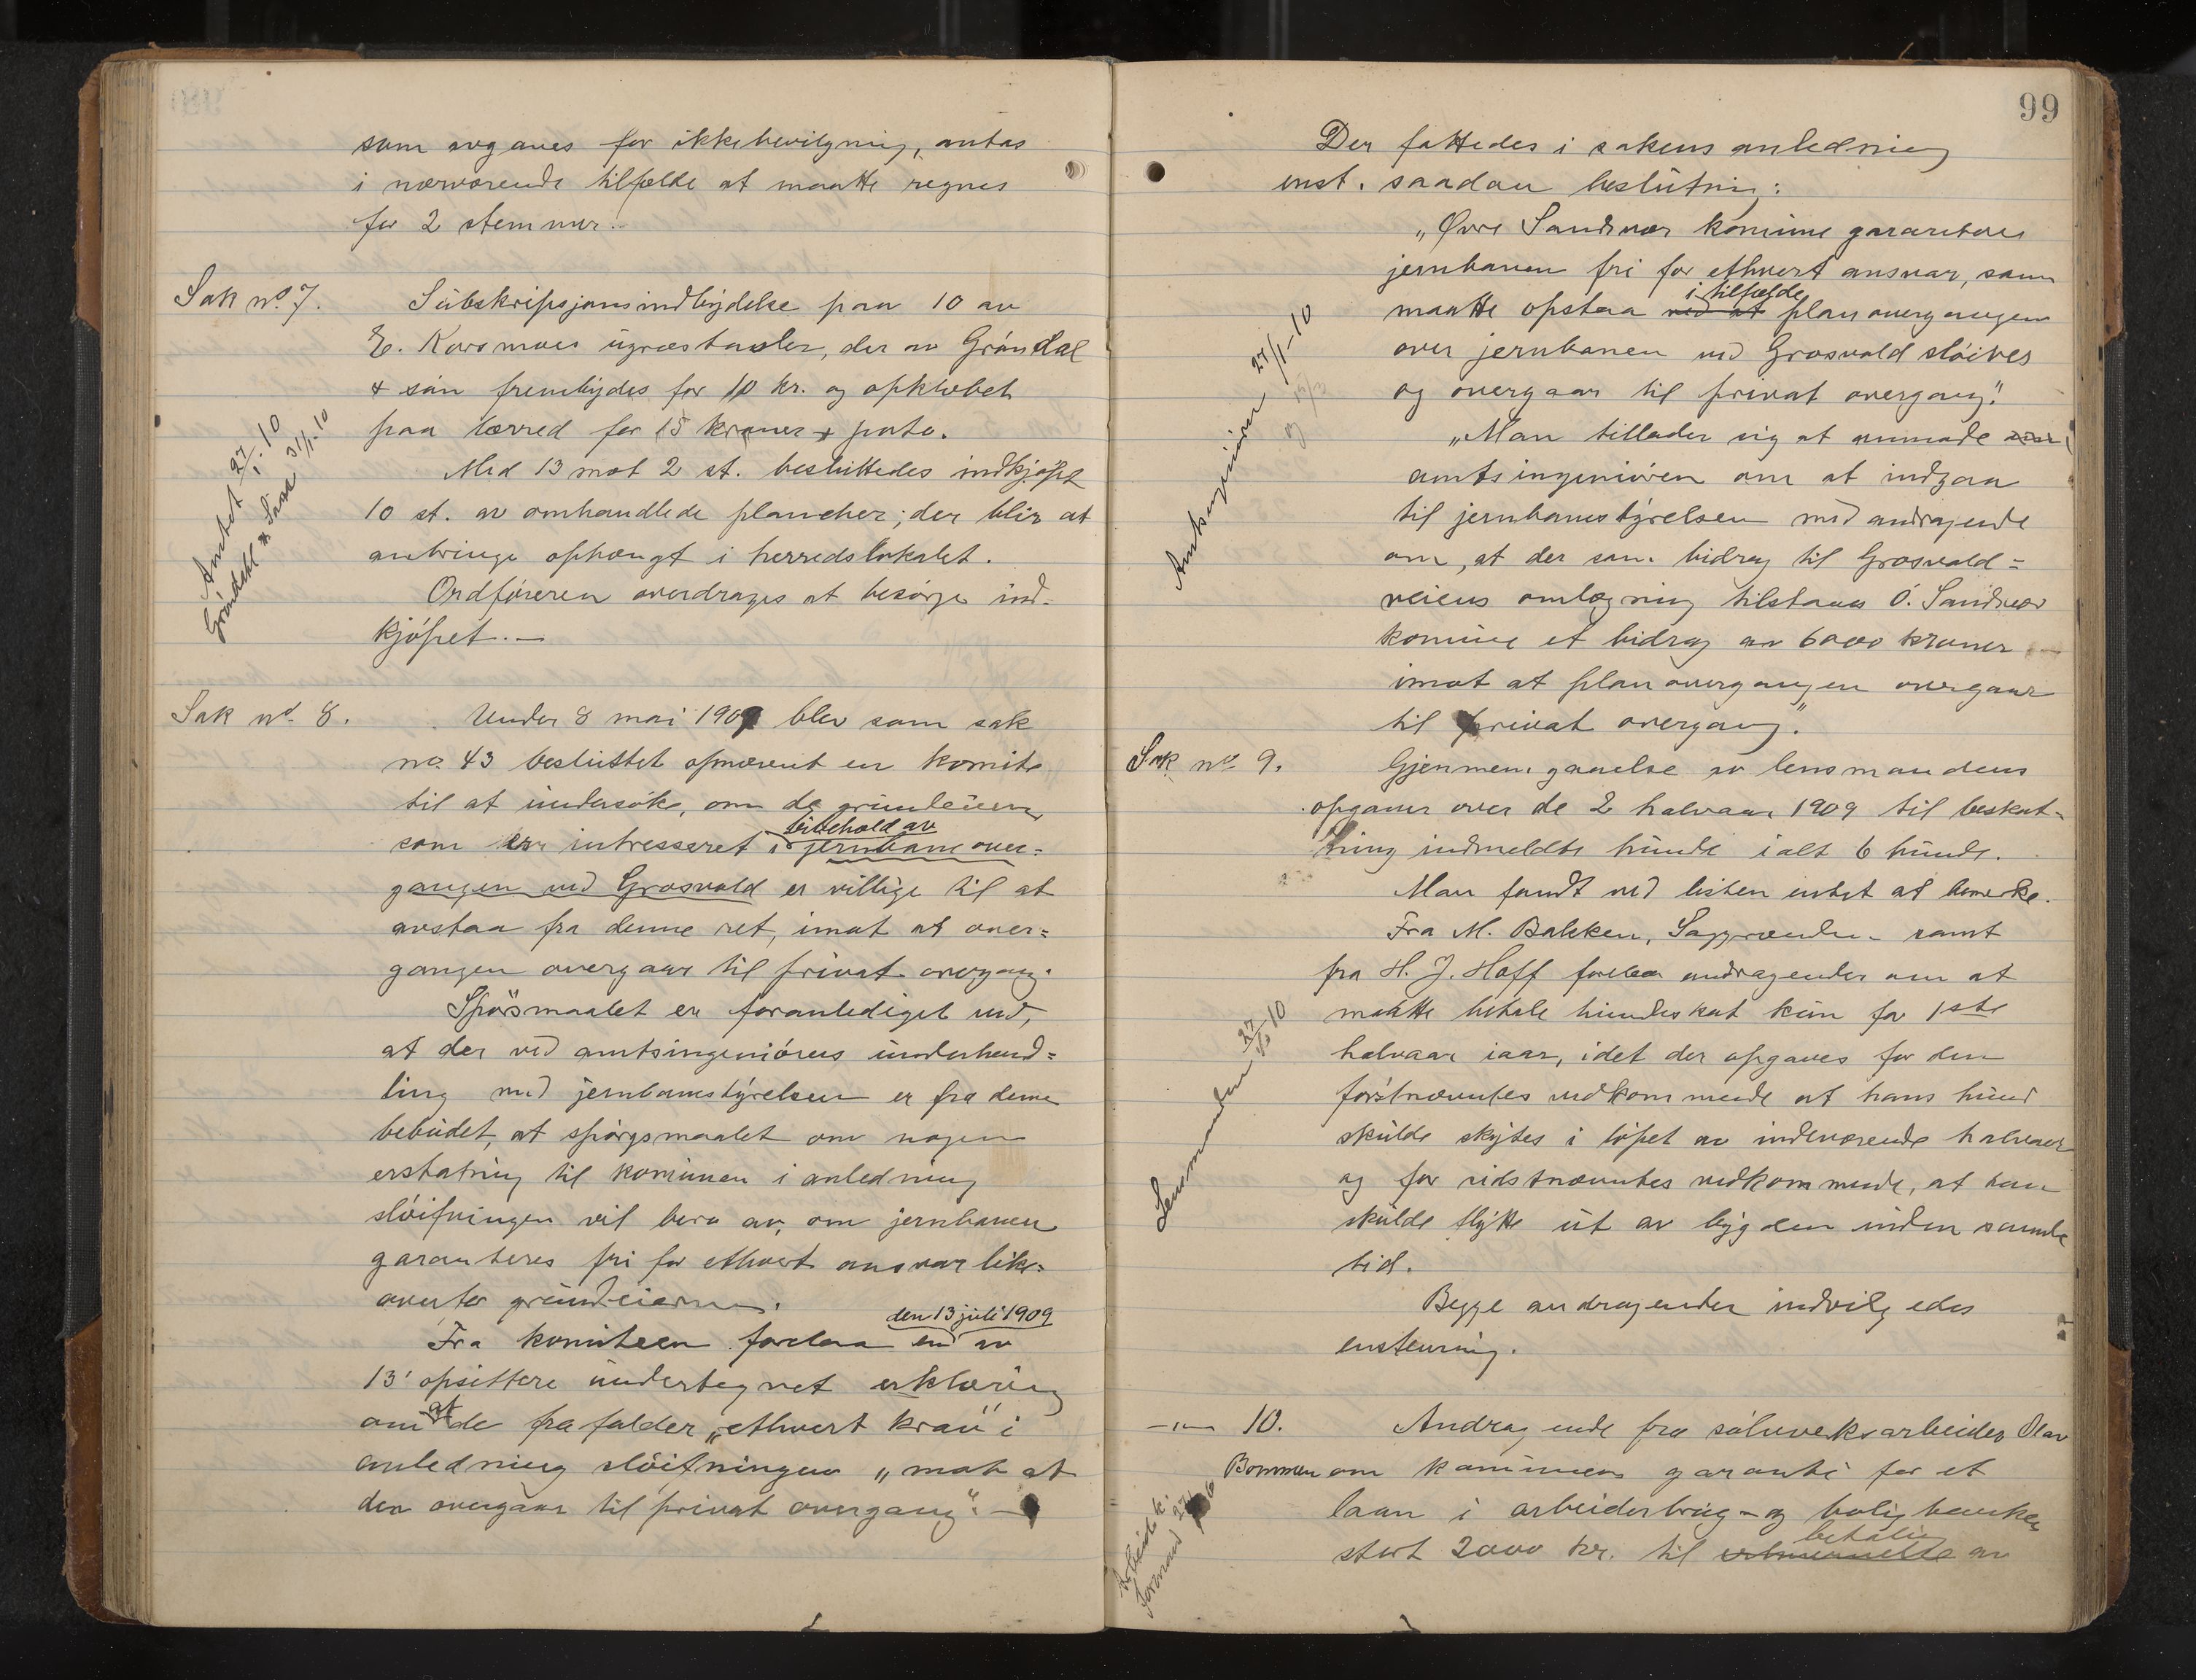 som avgaves for ikkebevilgning, antas
i nærværende tilfælde at maatte regnes
for 2 stemmer.
Sak no. 7.
Subskripsjonsindbydelse paa 10 av
E. Korsmoes ugræstavler, der av Gröndal
& sön frembydes for 10 kr. og opklæbet
paa lærred for 15 kroner + porto.
Med 13 mot 2 st. besluttedes indkjöpt
10 st. av omhandlede plancher; der blir at
anbringe ophængt i herredslokalet.
Ordföreren overdrages at besörge ind-
kjöpet. —
Amtet 27/1-10
Gröndahl & Sön 31/1-10
Sak no. 8.
Under 8 mai 1909 blev som sak
no. 43 besluttet opnævnt en komite
til at undersöke, om de grundeiere
som er intresseret i bibehold av jernbaneover=
gangen ved Grosvold er villige til at
avstaa fra denne ret, imot at over=
gangen overgaar til privat overgang.
Spörsmaalet er foranlediget ved,
at der ved amtsingeniörens underhand=
ling med jernbanestyrelsen er fra denne
bebudet, at spörgsmaalet om nogen
erstatning til kommunen i anledning
slöifningen vil bero av, om jernbanen
garanteres fri for ethvert ansvar like=
overfor grundeierne.
Fra komiteen forelaa en den 13 juli 1909 av
13 opsittere undertegnet erklæring
om at de frafalder „ethvert krav" i
anledning slöifningen „mot at
den overgaar til privat overgang". —
99
Der fattedes i sakens anledning
enst. saadan beslutning:
„Øvre Sandsvær komune garanterer
jernbanen fri for ethvert ansvar, som
maatte opstaa ved at i tilfælde planovergangen
over jernbanen ved Grosvold slöives
og overgaar til privat overgang".
„Man tillader sig at anmode
amtsingeniören om at indgaa
til jernbanestyrelsen med andragende
om, at der som bidrag til Grosvold=
veiens omlægning tilstaaes Ö. Sandsvær
komune et bidrag av 6000 kroner
imot at planovergangen overgaar
til privat overgang."
Amtsingeniören 27/1-10
Sak no. 9.
Gjennemgaaelse av lensmandens
opgaver over de 2 halvaar 1909 til beskat=
ning indmeldte hunde ialt 6 hunde.
Man fandt ved listen intet at bemerke.
Fra M. Bakken, Saggrenden samt
fra H. J. Hoff forelaa andragender om at
maatte betale hundeskat kun for 1ste
halvaar iaar, idet der opgaves for den
förstnævntes vedkommende at hans hund
skulde skytes i löpet av indeværende halvaar
og for sidstnævntes vedkommende, at han
skulde flytte ut av bygden inden samme
tid.
Begge andragender indvilgedes
enstemmig.
Lensmanden 27/1-10
—"— 10.
Andragende fra sölvverksarbeider Olav
Bommen om komunens garanti for et
laan i arbeiderbrug- og boligbanken
stort 2000 kr. til betaling av